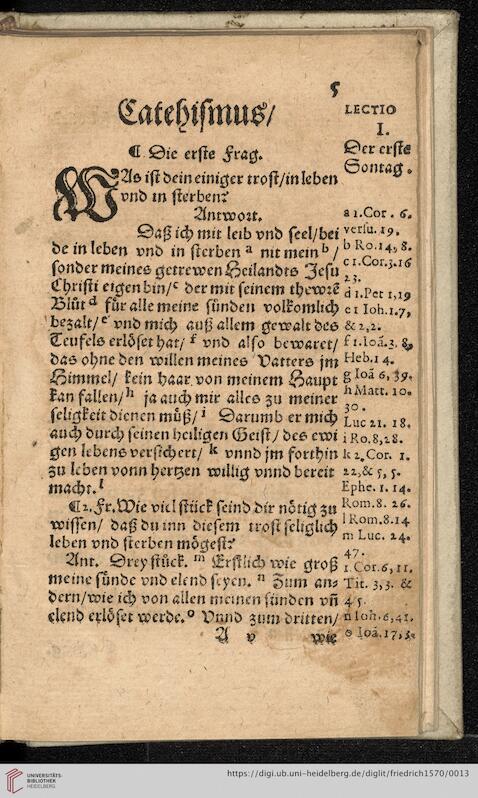 5
Catehismus/
LECTIO
I.
Der erste
Sontag.
¶ Die erste Frag.
WAs ist dein einiger trost/in leben
vnd in sterben?
Antwort.
Daß ich mit leib vnd seel/bei
de in leben vnd in sterben a nit mein b /
sonder meines getrewen Heilandts Jesu
Christi eigen bin/ c der mit seinem thewrẽ
Blůt d für alle meine sünden volkomlich
bezalt/ e vnd mich auß allem gewalt des
Teufels erlöset hat/ f vnd also bewaret/
das ohne den willen meines Vatters jm
Himmel/ kein haar von meinem Haupt
kan fallen/ h ja auch mir alles zu meiner
seligkeit dienen můß/ i Darumb er mich
auch durch seinen heiligen Geist/ des ewi
gen lebens versichert/ k vnnd jm forthin
zu leben vonn hertzen willig vnnd bereit
macht. l
¶ 2. Fr. Wie viel stück seind dir nötig zu
wissen/ daß du inn diesem trost seliglich
leben vnd sterben mögest?
Ant. Drey stück. m Erstlich wie groß
meine sünde vnd elend seyen. n Zum an-
dern/wie ich von allen meinen sünden vñ
elend erlöset werde. o Vnnd zum dritten/
A v wie
a 1.Cor. 6.
versu.19.
b Ro.14, 8.
c 1.Cor.3.16
23.
d 1.Pet 1,19
e 1 Ioh.1.7,
& 2,2.
f 1.Ioã.3. 8,
Heb.14.
g Ioã 6, 39.
h Matt. 10.
30.
Luc 21. 18.
i Ro.8,28.
k 2,Cor. 1.
22,& 5, 5.
Ephe. 1. 14.
Rom.8. 26.
l Rom.8.14
m Luc. 24.
47.
1.Cor.6, 11.
Tit. 3,3. &
4 5.
n Ioh.6,41.
o Ioã.17,3.
UNIVERSITÄTS-
BIBLIOTHEK
HEIDELBERG
https://digi.ub.uni-heidelberg.de/diglit/friedrich1570/0013